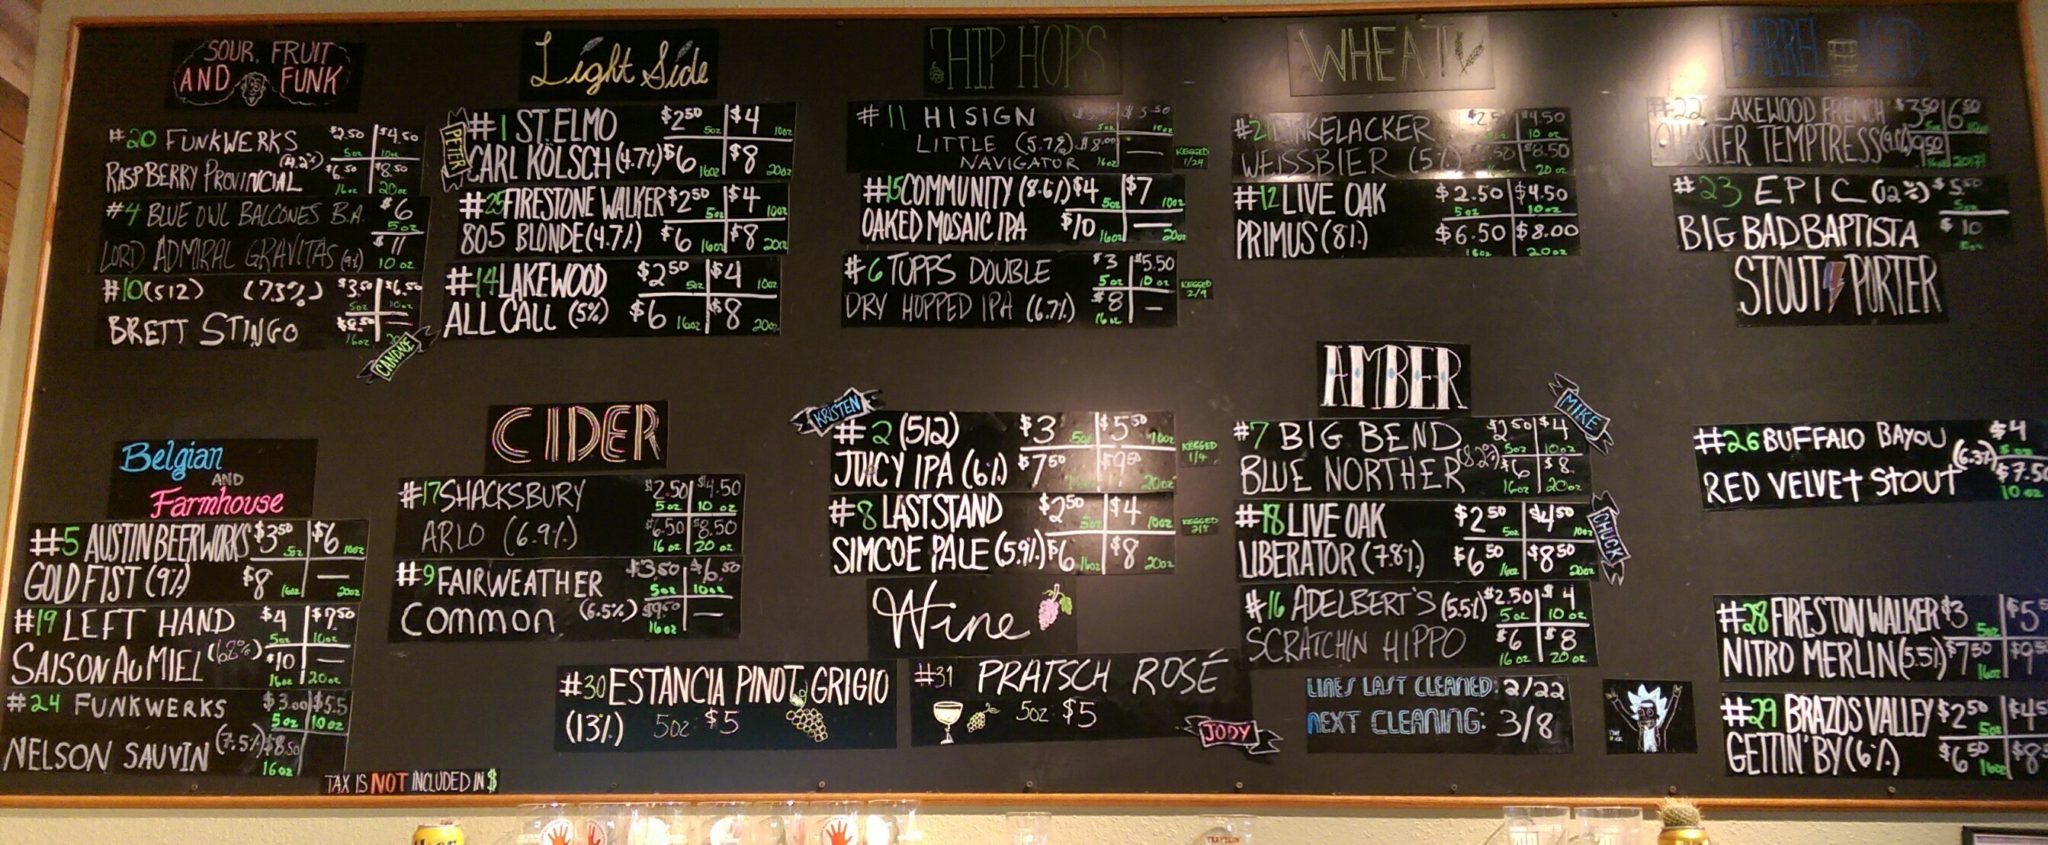 SOUR, FRUIT
AND FUNK
#20 FUNKWERKS $2.50 $4.50
5oz 10oz
RASPBERRY PROVINCIAL (4.2%) $6.50 $8.50
16oz 20oz
#4 BLUE OWL BALCONES B.A. $6
5oz
LORD ADMIRAL GRAVITAS (9%) $11
10 oz
#10 (512) (7.3%) $3.50 $6.50
5oz 10oz
BRETT STINGO $8.50 —
16oz
CANDACE
Belgian
AND
Farmhouse
#5 AUSTIN BEERWORKS $3.50 $6
5oz 10oz
GOLD FIST (9%) $8 —
16oz 20oz
#19 LEFT HAND $4 $7.50
5oz 10oz
SAISON AU MIEL $10 —
16oz 20oz
#24 FUNKWERKS $3.00 $5.5
5oz 10oz
NELSON SAUVIN (7.5%) $8.50
16oz
TAX IS NOT INCLUDED IN $
Light Side
PETER
#1 ST. ELMO $2.50 $4
5oz 10oz
CARL KÖLSCH (4.7%) $6 $8
16oz 20oz
#25 FIRESTONE WALKER $2.50 $4
5oz 10oz
805 BLONDE (4.7%) $6 $8
16oz 20oz
#14 LAKEWOOD $2.50 $4
5oz 10oz
ALL CALL (5%) $6 $8
16oz 20oz
CIDER
#17 SHACKSBURY $2.50 $4.50
5oz 10oz
ARLO (6.9%) $6.50 $8.50
16oz 20oz
#9 FAIRWEATHER $3.50 $6.50
5oz 10oz
COMMON (6.5%) $9.50 —
16oz
#30 ESTANCIA PINOT GRIGIO
(13%) 5oz: $5
HIP HOPS
#11 HI SIGN $5.50
5oz 10oz
LITTLE (5.7%) $8.00 —
NAVIGATOR 16oz
KEGGED
1/24
#15 COMMUNITY (8.6%) $4 $7
5oz 10oz
OAKED MOSAIC IPA $10 —
16oz 20oz
#6 TUPPS DOUBLE $3 $5.50
5oz 10oz
DRY HOPPED IPA (6.7%) $8 —
16oz
KEGGED
2/9
KRISTEN
#2 (512) $3 $5.50
5oz 10oz
JUICY IPA (6%) $7.50 $9.50
20oz
KEGGED
1/4
#8 LAST STAND $2.50 $4
5oz 10oz
SIMCOE PALE (5.9%) $6 $8
16oz 20oz
KEGGED
Wine
#31 PRATSCH ROSÉ
5oz: $5
JODY
WHEAT
#21 DINKELACKER $4.50
10 oz
WEISSBIER (5%) $8.50
20 oz
#12 LIVE OAK $2.50 $4.50
5oz 10oz
PRIMUS (8%) $6.50 $8.00
16oz 20oz
AMBER
MIKE
#7 BIG BEND $2.50 $4
5oz 10oz
BLUE NORTHER $6 $8
16oz 20oz
#18 LIVE OAK $2.50 $4.50
5oz 10oz
LIBERATOR (7.8%) $6.50 $8.50
16oz 20oz
CHUCK
#16 ADELBERT'S (5.5%) $2.50 $4
5oz 10oz
SCRATCHIN HIPPO $6 $8
16oz 20oz
LINES LAST CLEANED: 2/22
NEXT CLEANING: 3/8
BARREL AGED
#22 LAKEWOOD FRENCH $3.50 $6.50
QUARTER TEMPTRESS
#23 EPIC (12%) $5.50
5oz
BIG BAD BAPTISTA $10
STOUT PORTER
#26 BUFFALO BAYOU $4
5oz
RED VELVET STOUT (6.3%) $7.50
10oz
#28 FIRESTON WALKER $3 $5
5oz
NITRO MERLIN (5.5%) $7.50 $9.50
16oz
#29 BRAZOS VALLEY $2.50
5oz
GETTIN' BY (6%) $6.50
16oz